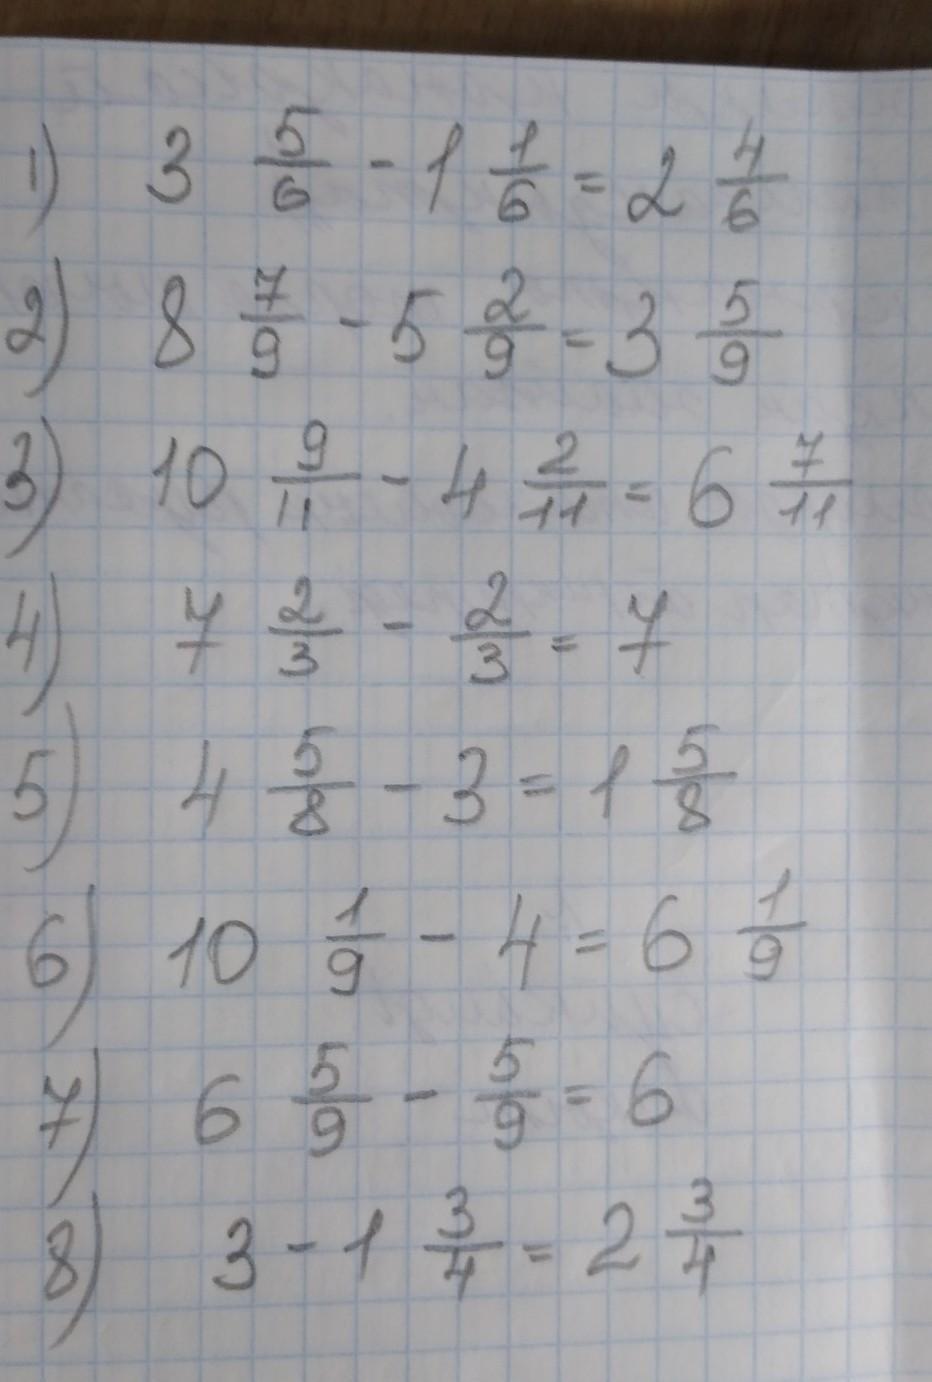 1) 3 5/6 - 1 1/6 = 2 4/6
2) 8 7/9 - 5 2/9 = 3 5/9
3) 10 9/11 - 4 2/11 = 6 7/11
4) 7 2/3 - 2/3 = 7
5) 4 5/8 - 3 = 1 5/8
6) 10 1/9 - 4 = 6 1/9
7) 6 5/9 - 5/9 = 6
8) 3 - 1 3/4 = 2 3/4